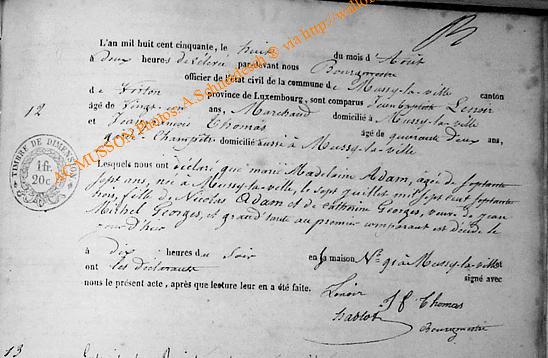 L'an mil huit cent cinquante, le huit du mois d'Août
à deux heures de relevé par-devant nous Bourgmestre
officier de l'état civil de la commune de Mussy-la-ville canton
de Virton province de Luxembourg, sont comparus Jean Baptiste Lenoir
12
âgé de Vingt ans, Marchand domicilié à Mussy-la-ville
et Jean François Thomas âgé de quarante deux ans,
garde Champêtre domicilié aussi à Mussy-la-ville
Lesquels nous ont déclaré que marie Madelaine Adam, âgée de septante
sept ans, née à Mussy-la-ville, le sept juillet mil sept cent septante
trois, fille de Nicolas Adam et de catherine Georges, veuve de jean
Michel Georges, et grand tante au premier comparant est décédée le
jour d'hier
à dix heures du Soir en sa maison N° 91 à Mussy-la-ville
ont les déclarants signé avec
nous le présent acte, après que lecture leur en a été faite.
Lenoir J f Thomas
Bourgmestre
13
TIMBRE DE DIMENSION
1 fr.
20 c.
ACMUSSON Photos: A.Schneilesch ® via http://wallo